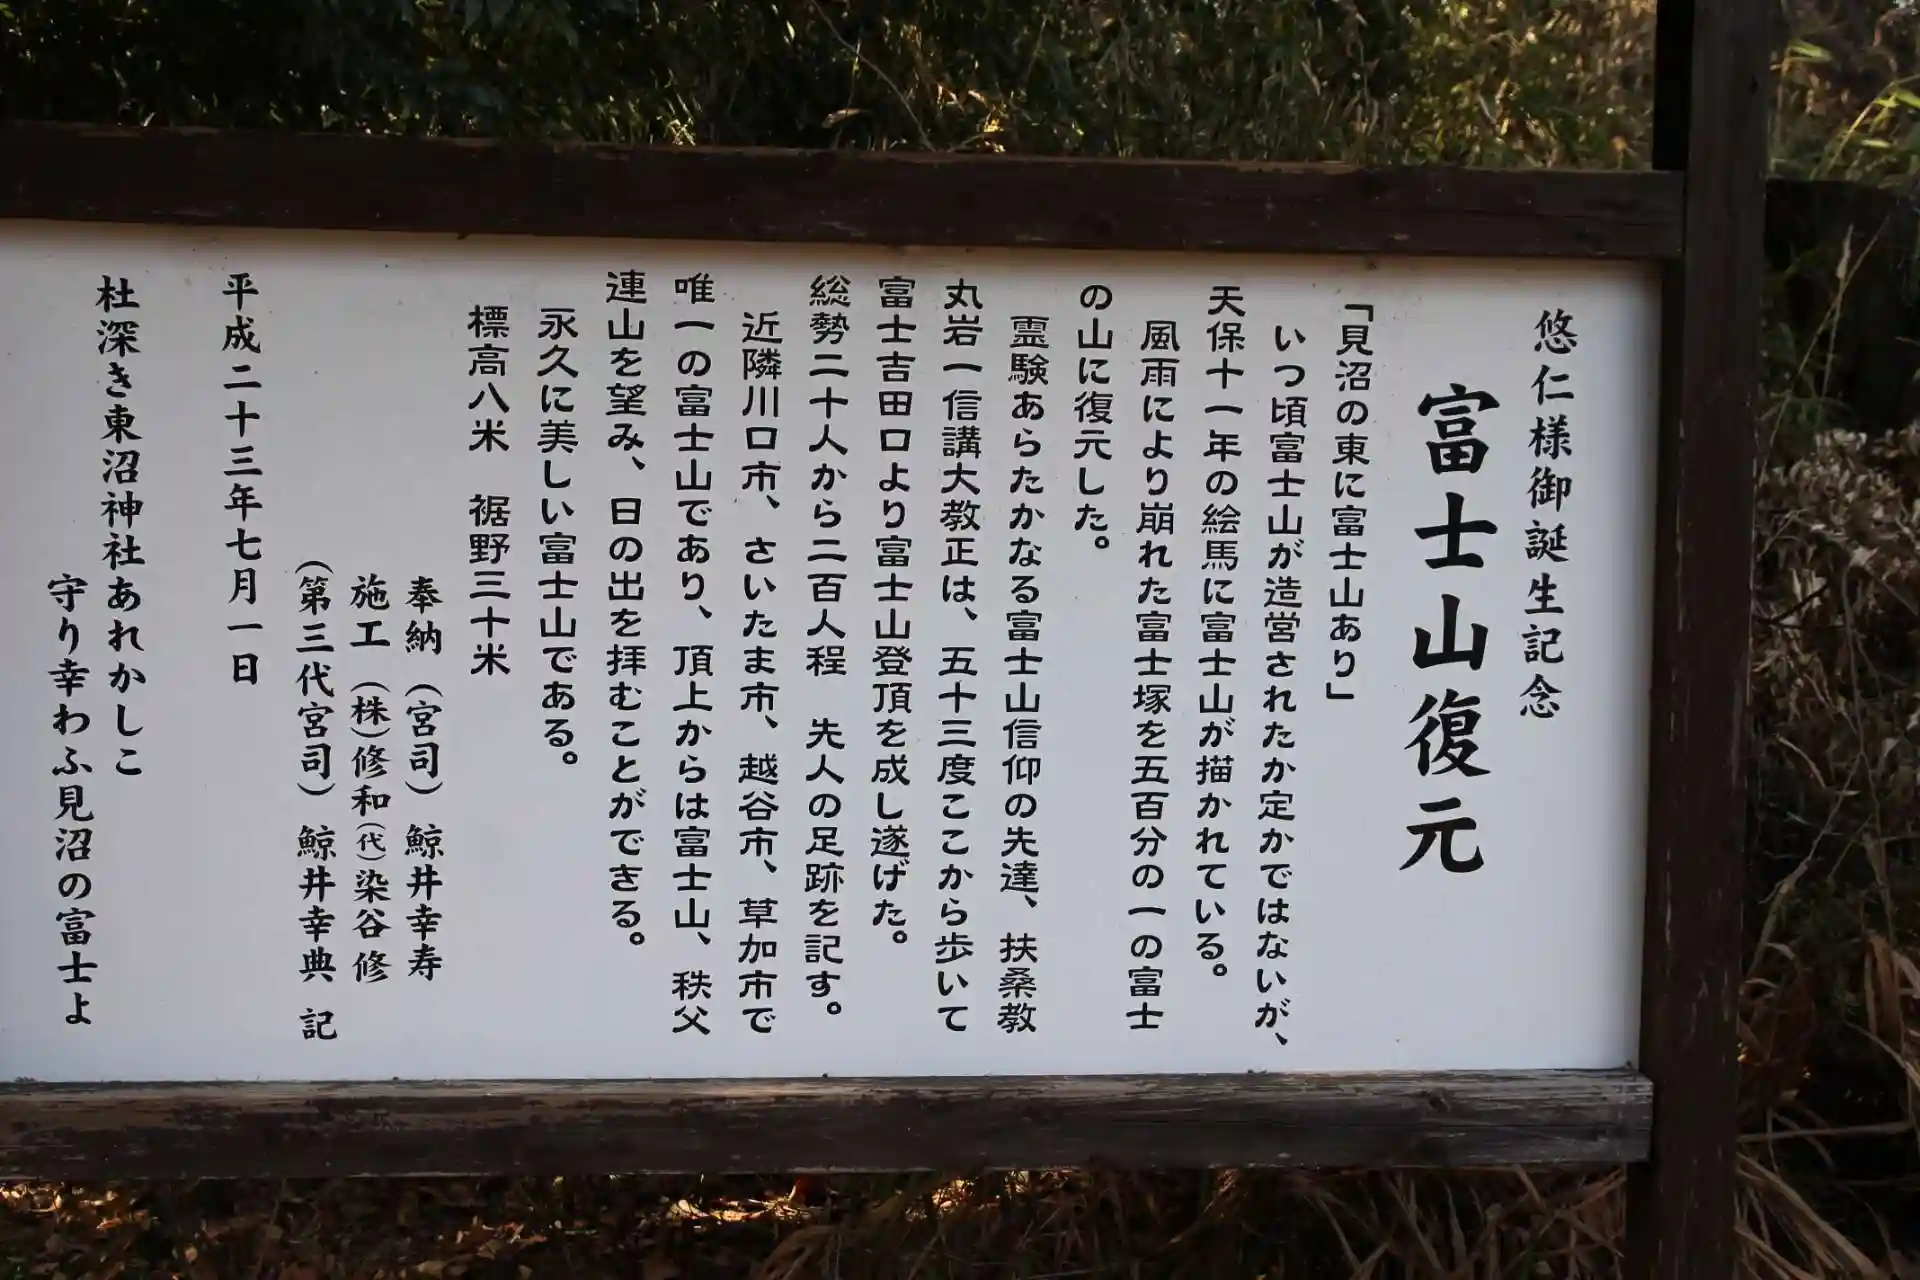 悠仁様御誕生記念
富士山復元
「見沼の東に富士山あり」
いつ頃富士山が造営されたか定かではないが、
天保十一年の絵馬に富士山が描かれている。
風雨により崩れた富士塚を五百分の一の富士
の山に復元した。
霊験あらたかなる富士山信仰の先達、扶桑教
丸岩一信講大教正は、五十三度ここから歩いて
富士吉田口より富士山登頂を成し遂げた。
総勢二十人から二百人程　先人の足跡を記す。
近隣川口市、さいたま市、越谷市、草加市で
唯一の富士山であり、頂上からは富士山、秩父
連山を望み、日の出を拝むことができる。
永久に美しい富士山である。
標高八米　裾野三十米
奉納（宮司）鯨井幸寿
施工（株）修和（代）染谷修
（第三代宮司）鯨井幸典 記
平成二十三年七月一日
杜深き東沼神社あれかしこ
守り幸わふ見沼の富士よ